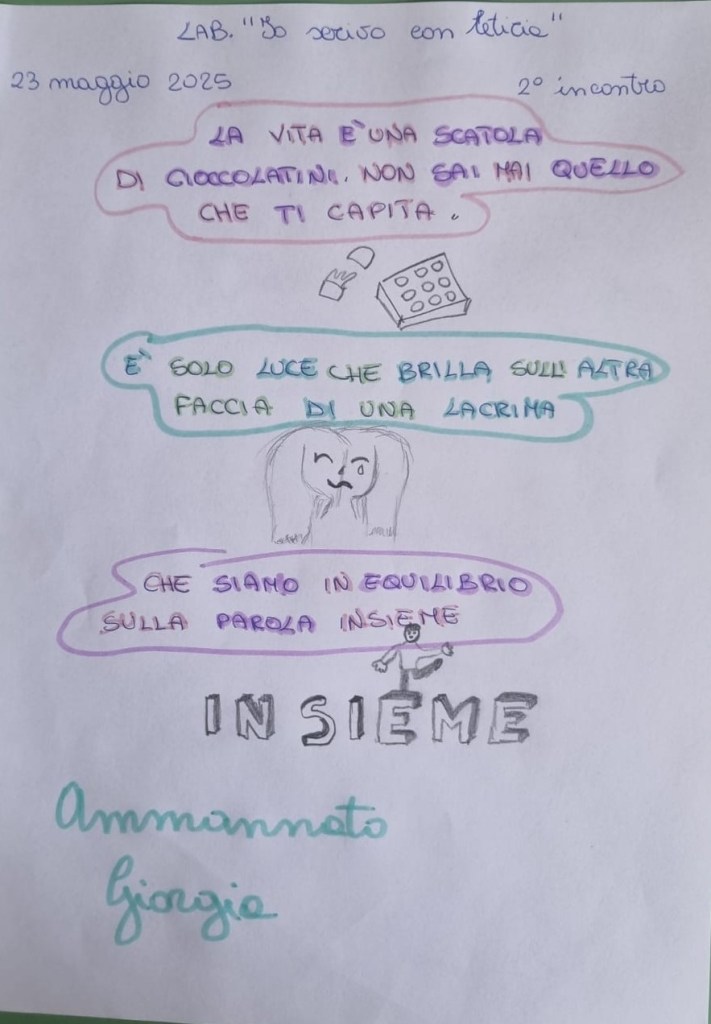 LAB. "Io scrivo con leticia"
23 maggio 2025
2° incontro
LA VITA E' UNA SCATOLA
DI CIOCCOLATINI. NON SAI MAI QUELLO
CHE TI CAPITA.
E' SOLO LUCE CHE BRILLA SULL'ALTRA
FACCIA DI UNA LACRIMA
CHE SIAMO IN EQUILIBRIO
SULLA PAROLA INSIEME
INSIEME
Ammannato
Giorgia